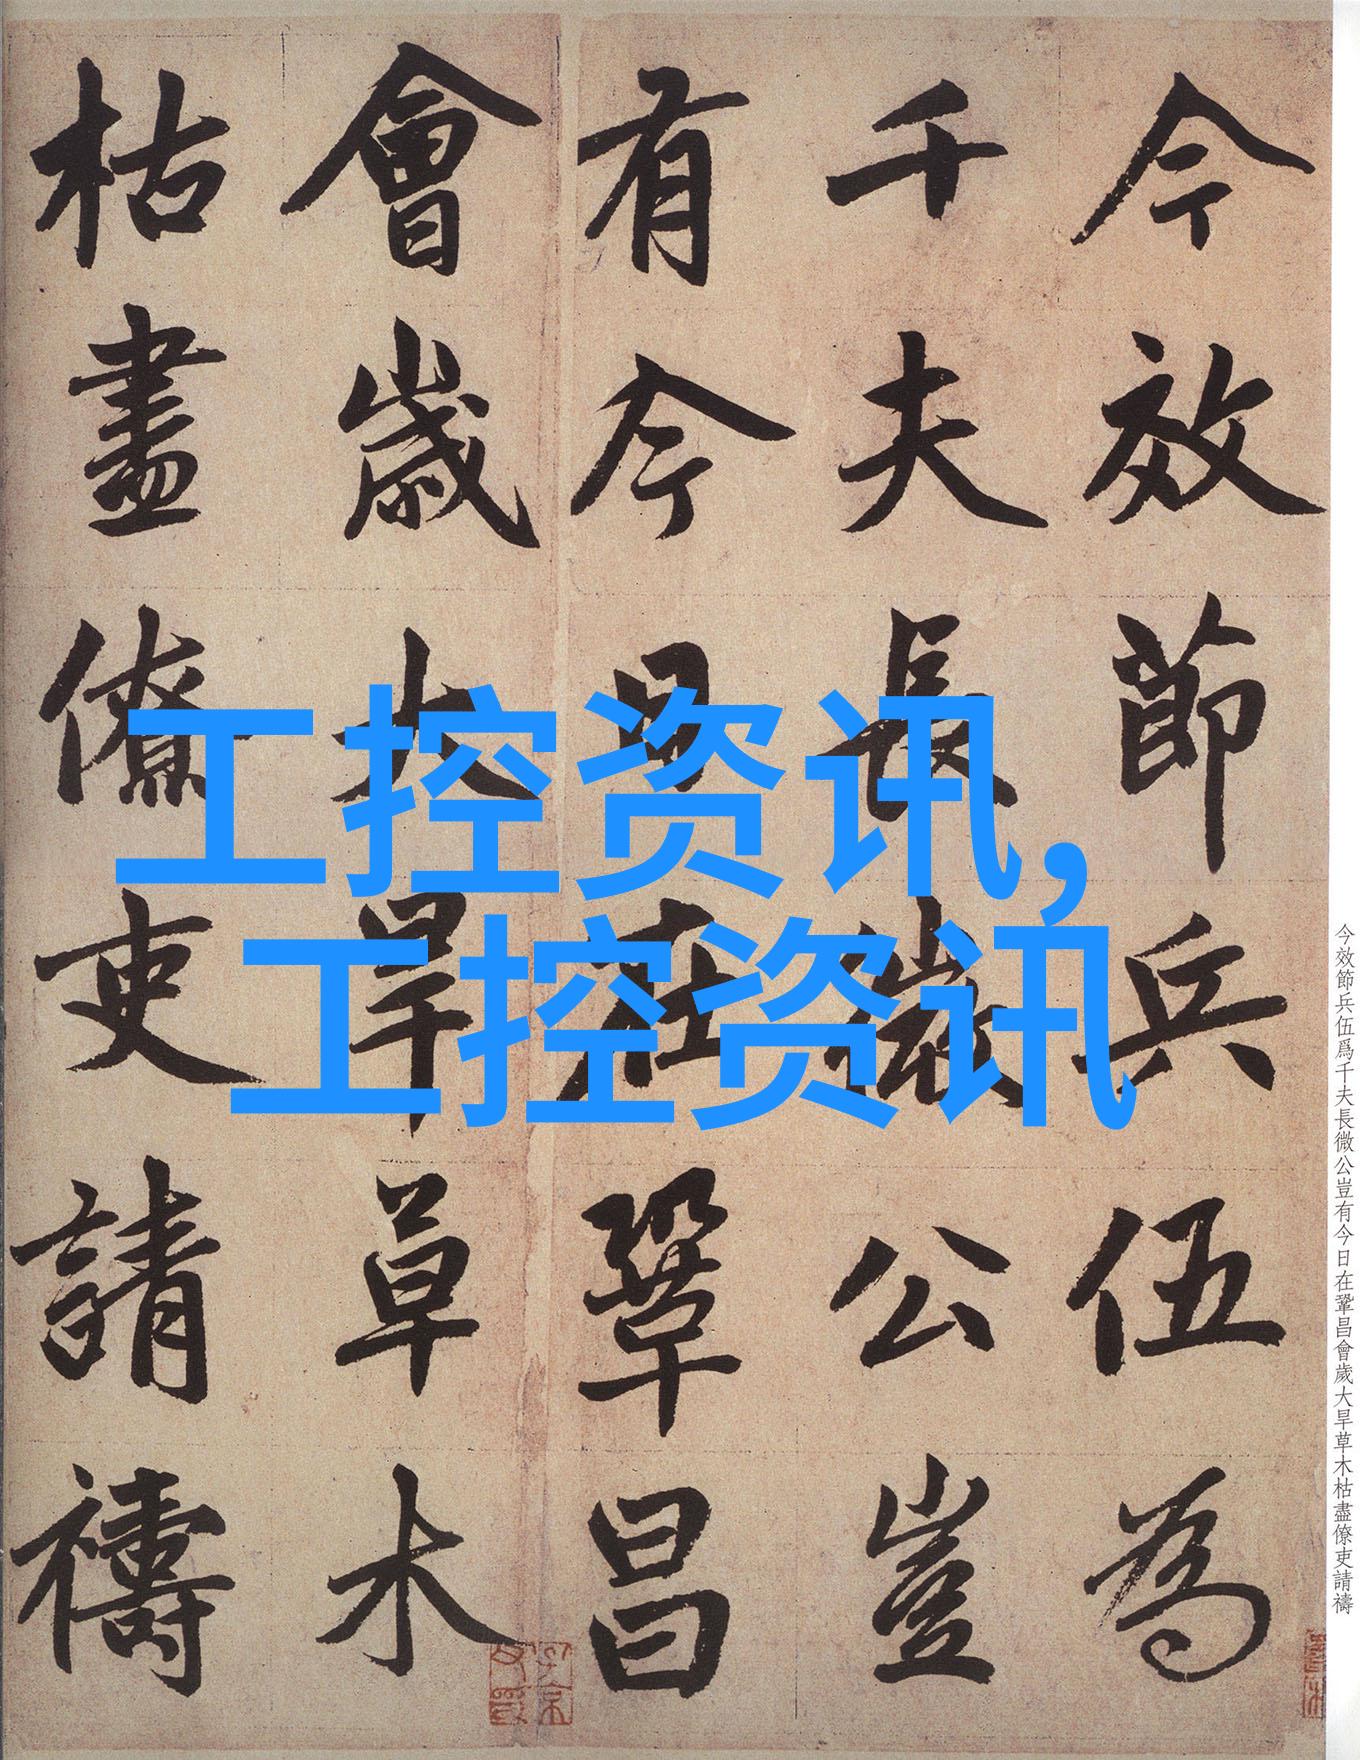 今效節兵伍為
千夫長微公豈
有今日在鞏昌
會歲大旱草木
枯盡僚吏請禱
工控资讯,
工控资讯
今效節兵伍爲千夫長微公豈有今日在鞏昌會歲大旱草木枯盡僚吏請禱